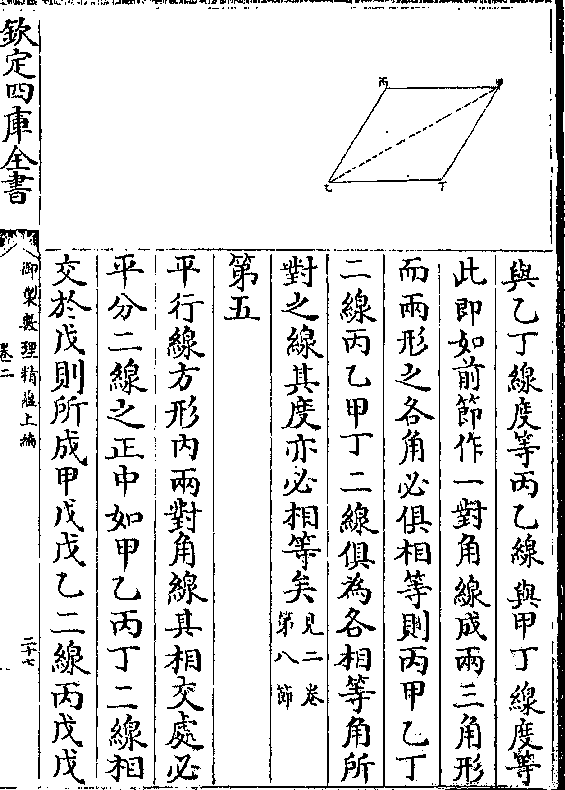 與乙丁線度等丙乙線與甲丁線度等
此即如前節作一對角線成兩三角形
而兩形之各角必俱相等則丙甲乙丁
二線丙乙甲丁二線俱為各相等角所
對之線其度亦必相等矣見二卷第八節
第五
平行線方形內兩對角線其相交處必
平分二線之正中如甲乙丙丁二線相
交於戊則所成甲戊戊乙二線丙戊戊
丙
甲
乙
丁
欽定四庫全書
御製數理精蘊上編
卷二
二十七